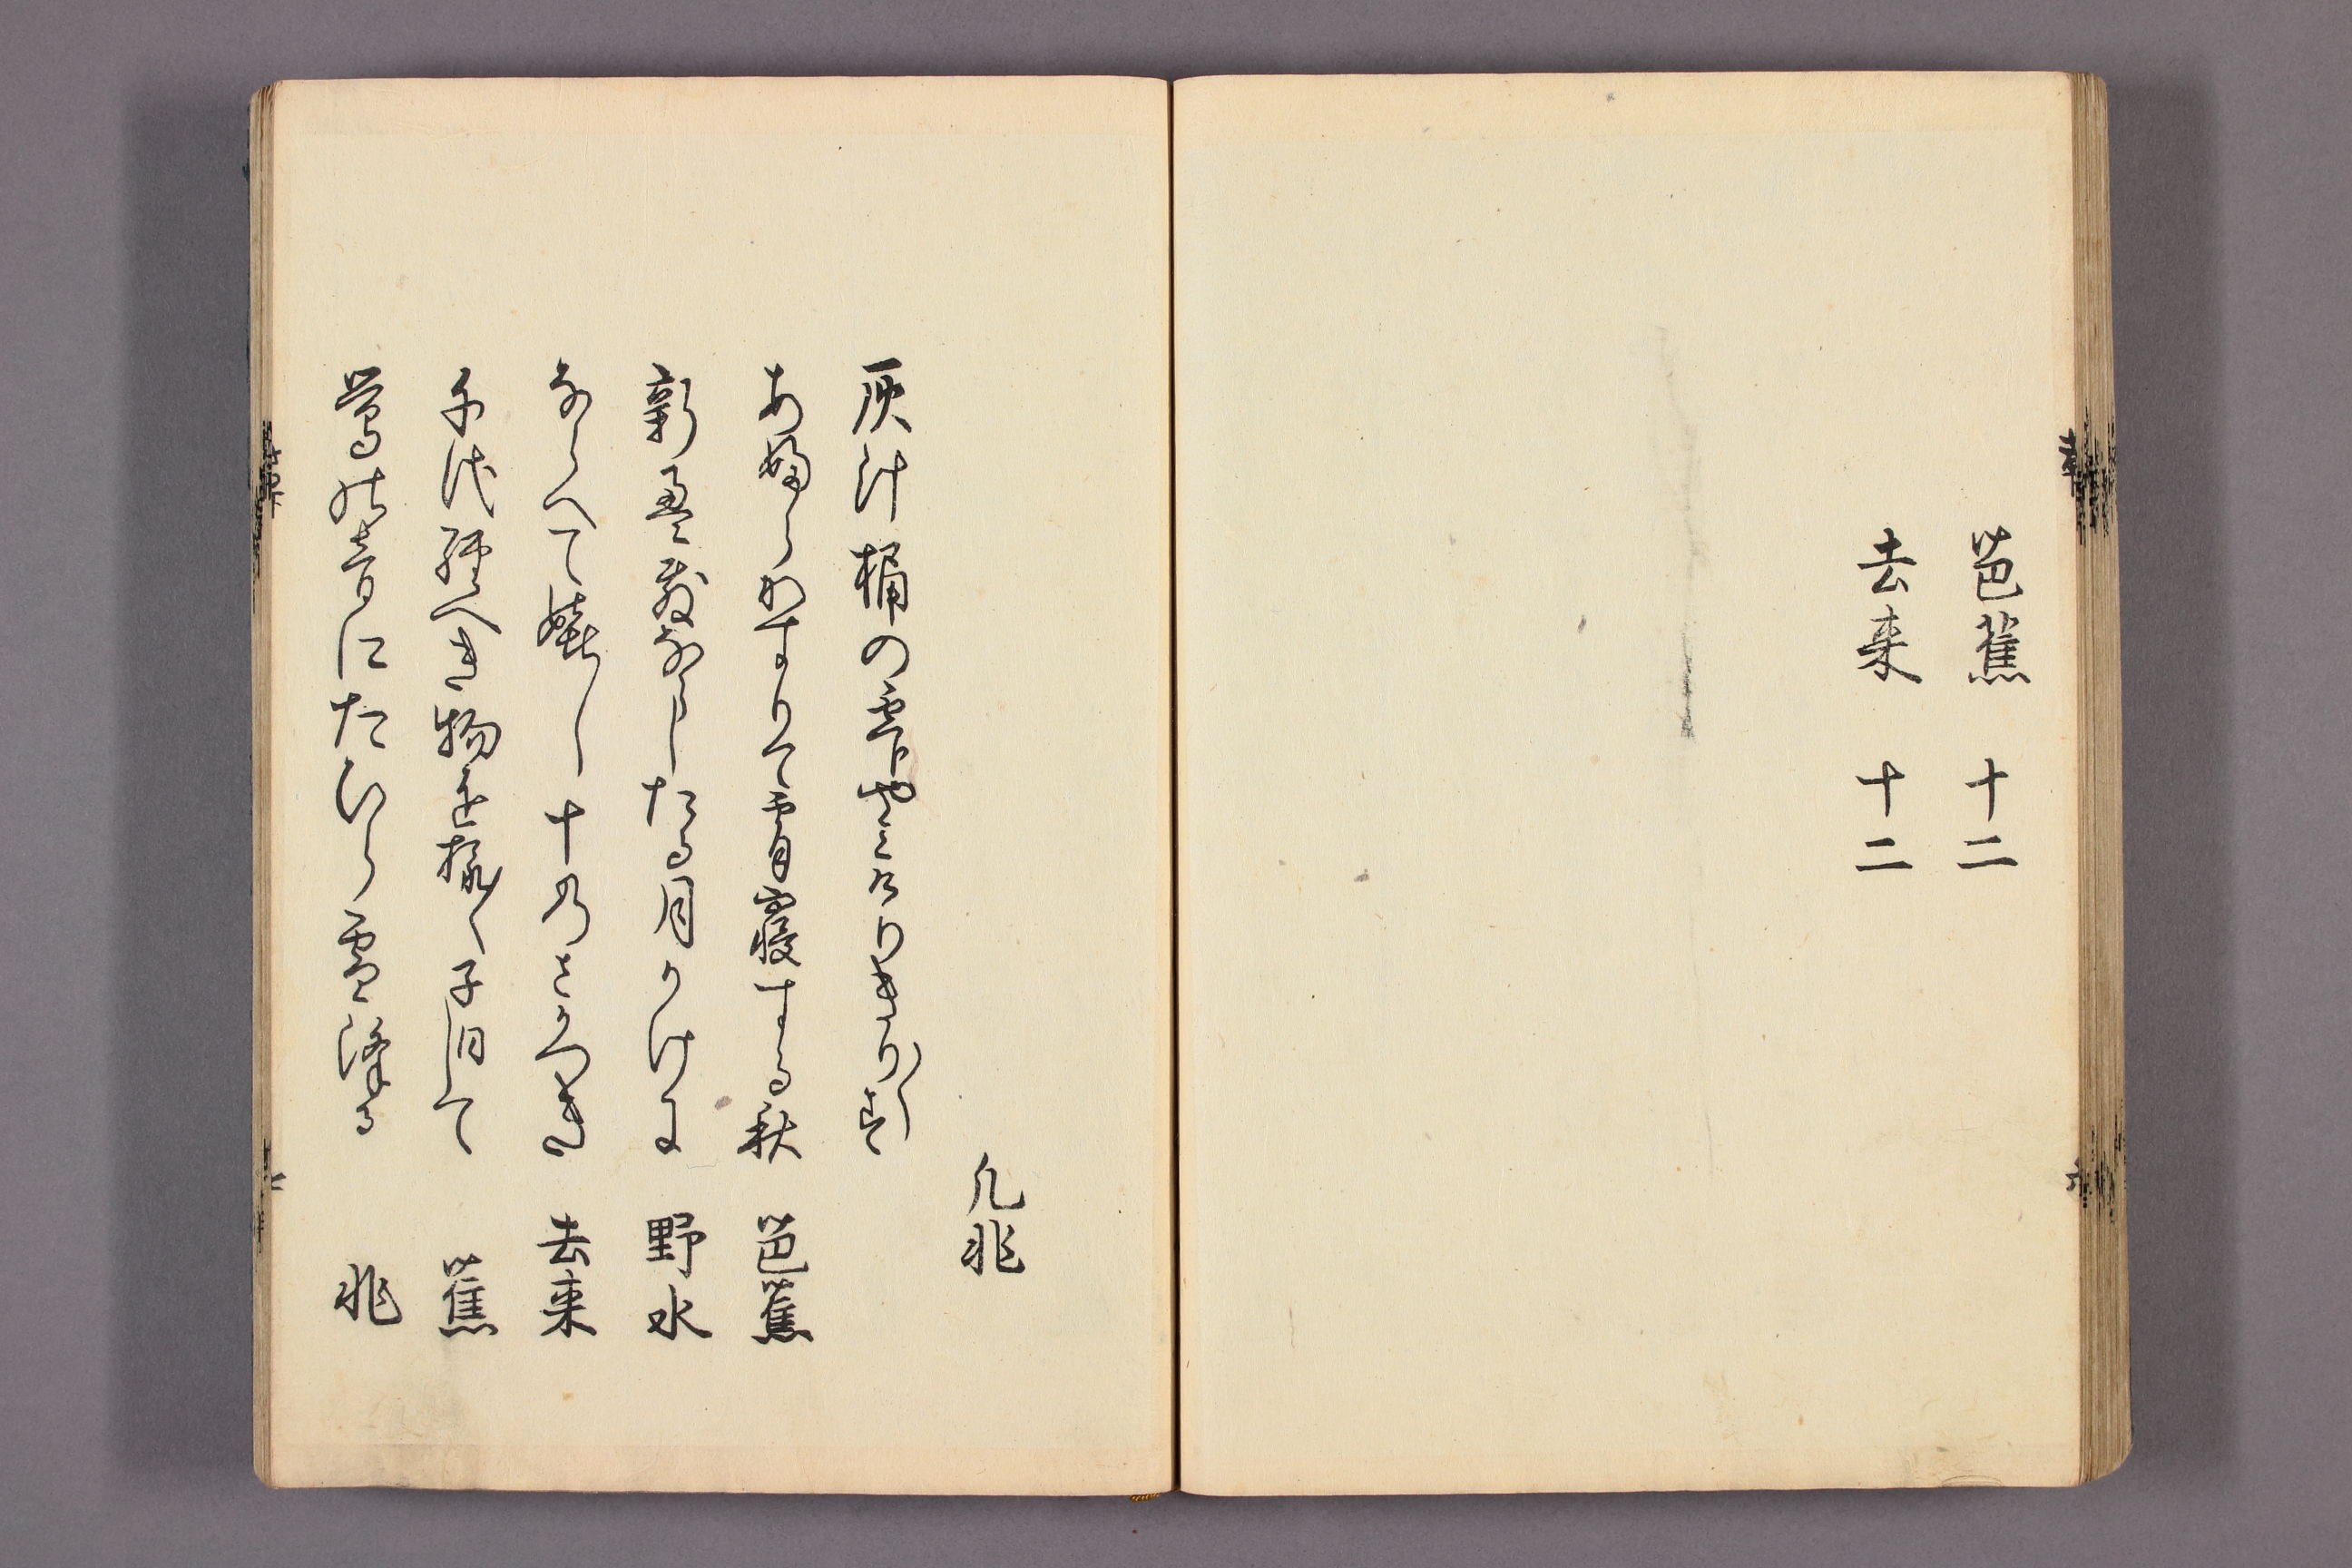 芭蕉　十二
去来　十二
凡兆
灰汁桶の雫やみけりきり〱す
あぶらかすりて宵寝する秋
新畳敷ならしたる月かけに
ならへて嬉し十のさかつき
千代経へき物を様〱子日して
鶯の音にたひら雪降る
芭蕉
野水
去来
蕉
兆